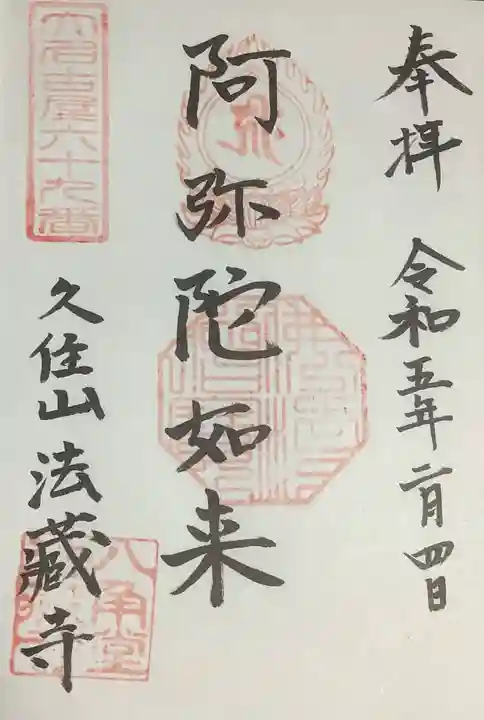 奉拝 令和五年二月四日
阿弥陀如来
大名古屋六十九番
久住山 法蔵寺
八角堂